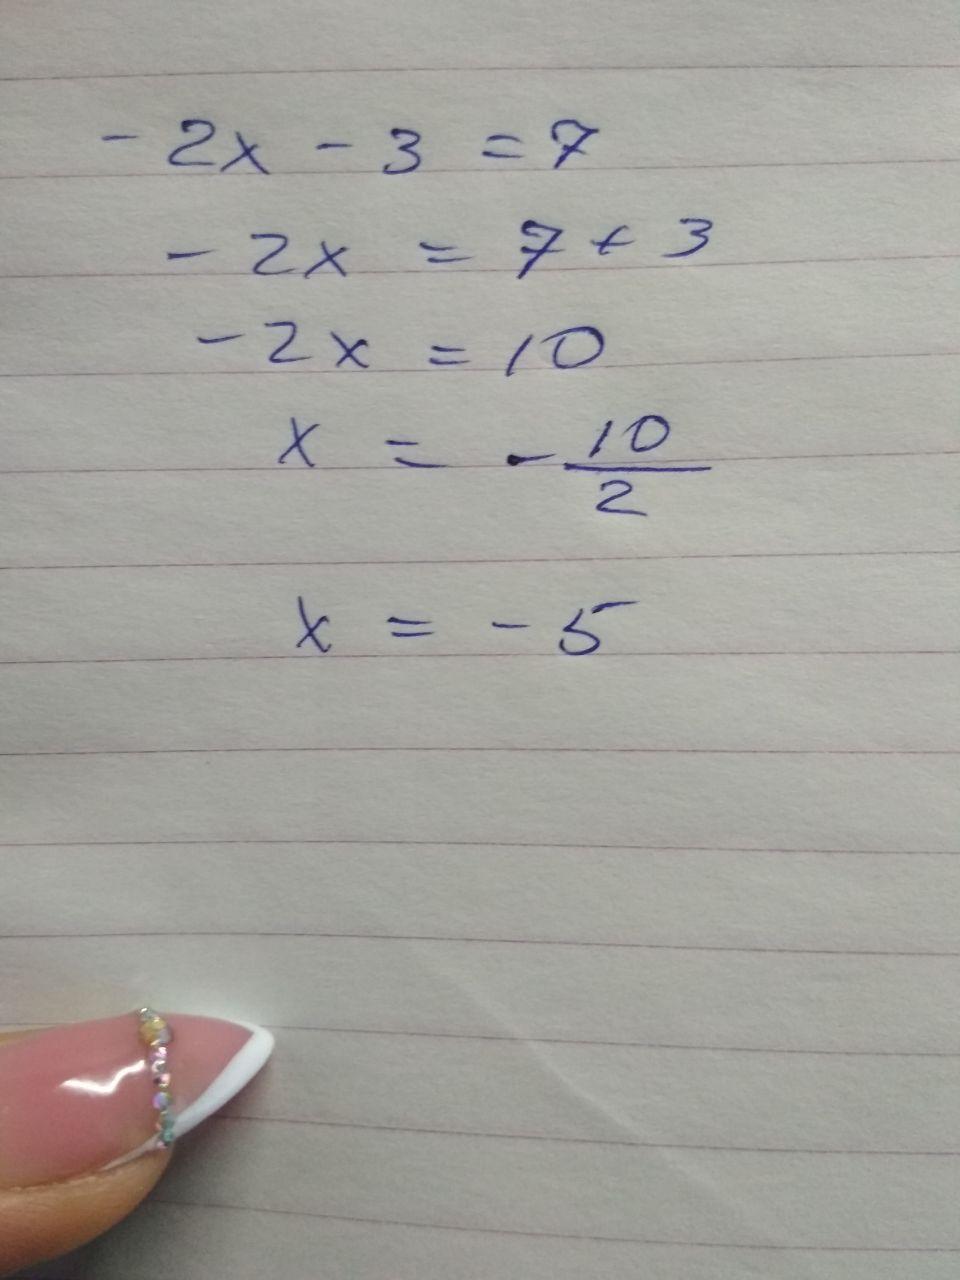 - 2x - 3 = 7
- 2x = 7 + 3
- 2x = 10
x = - 10/2
x = - 5